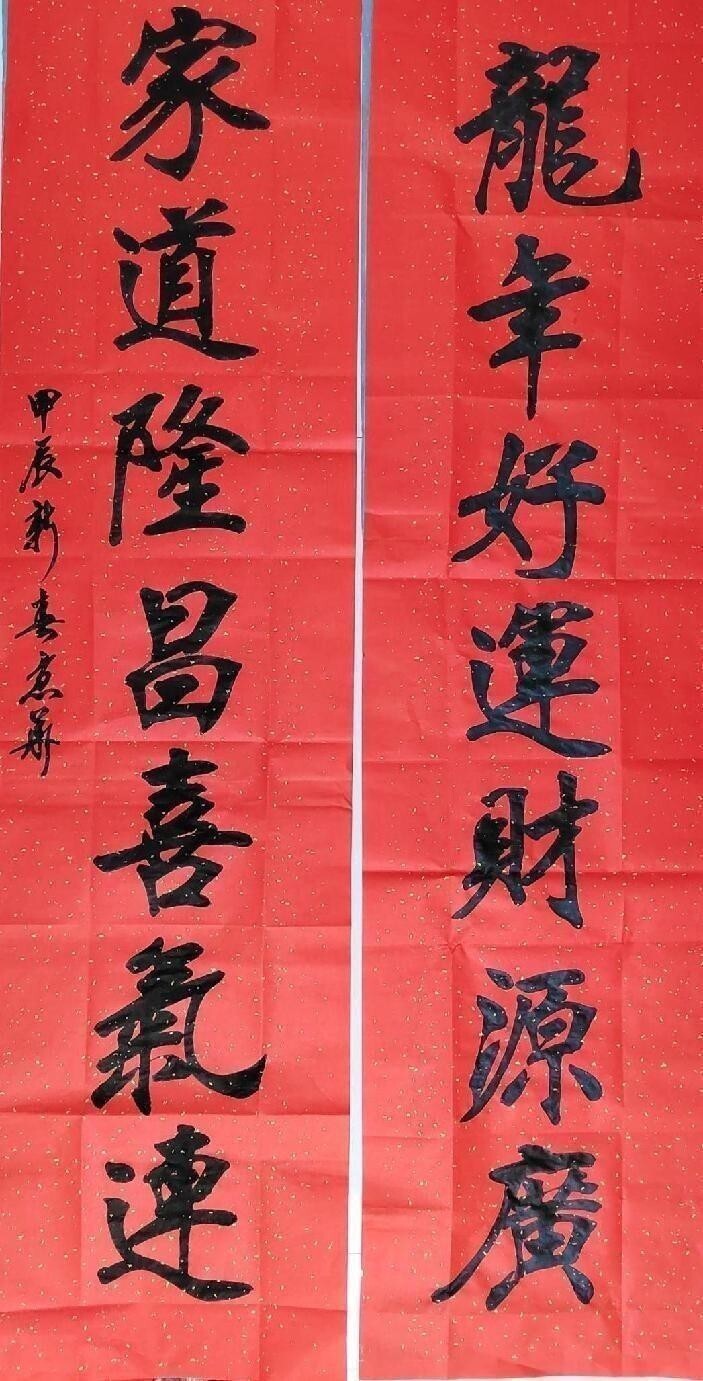 龍年好運財源廣
家道隆昌喜氣連
甲辰新春